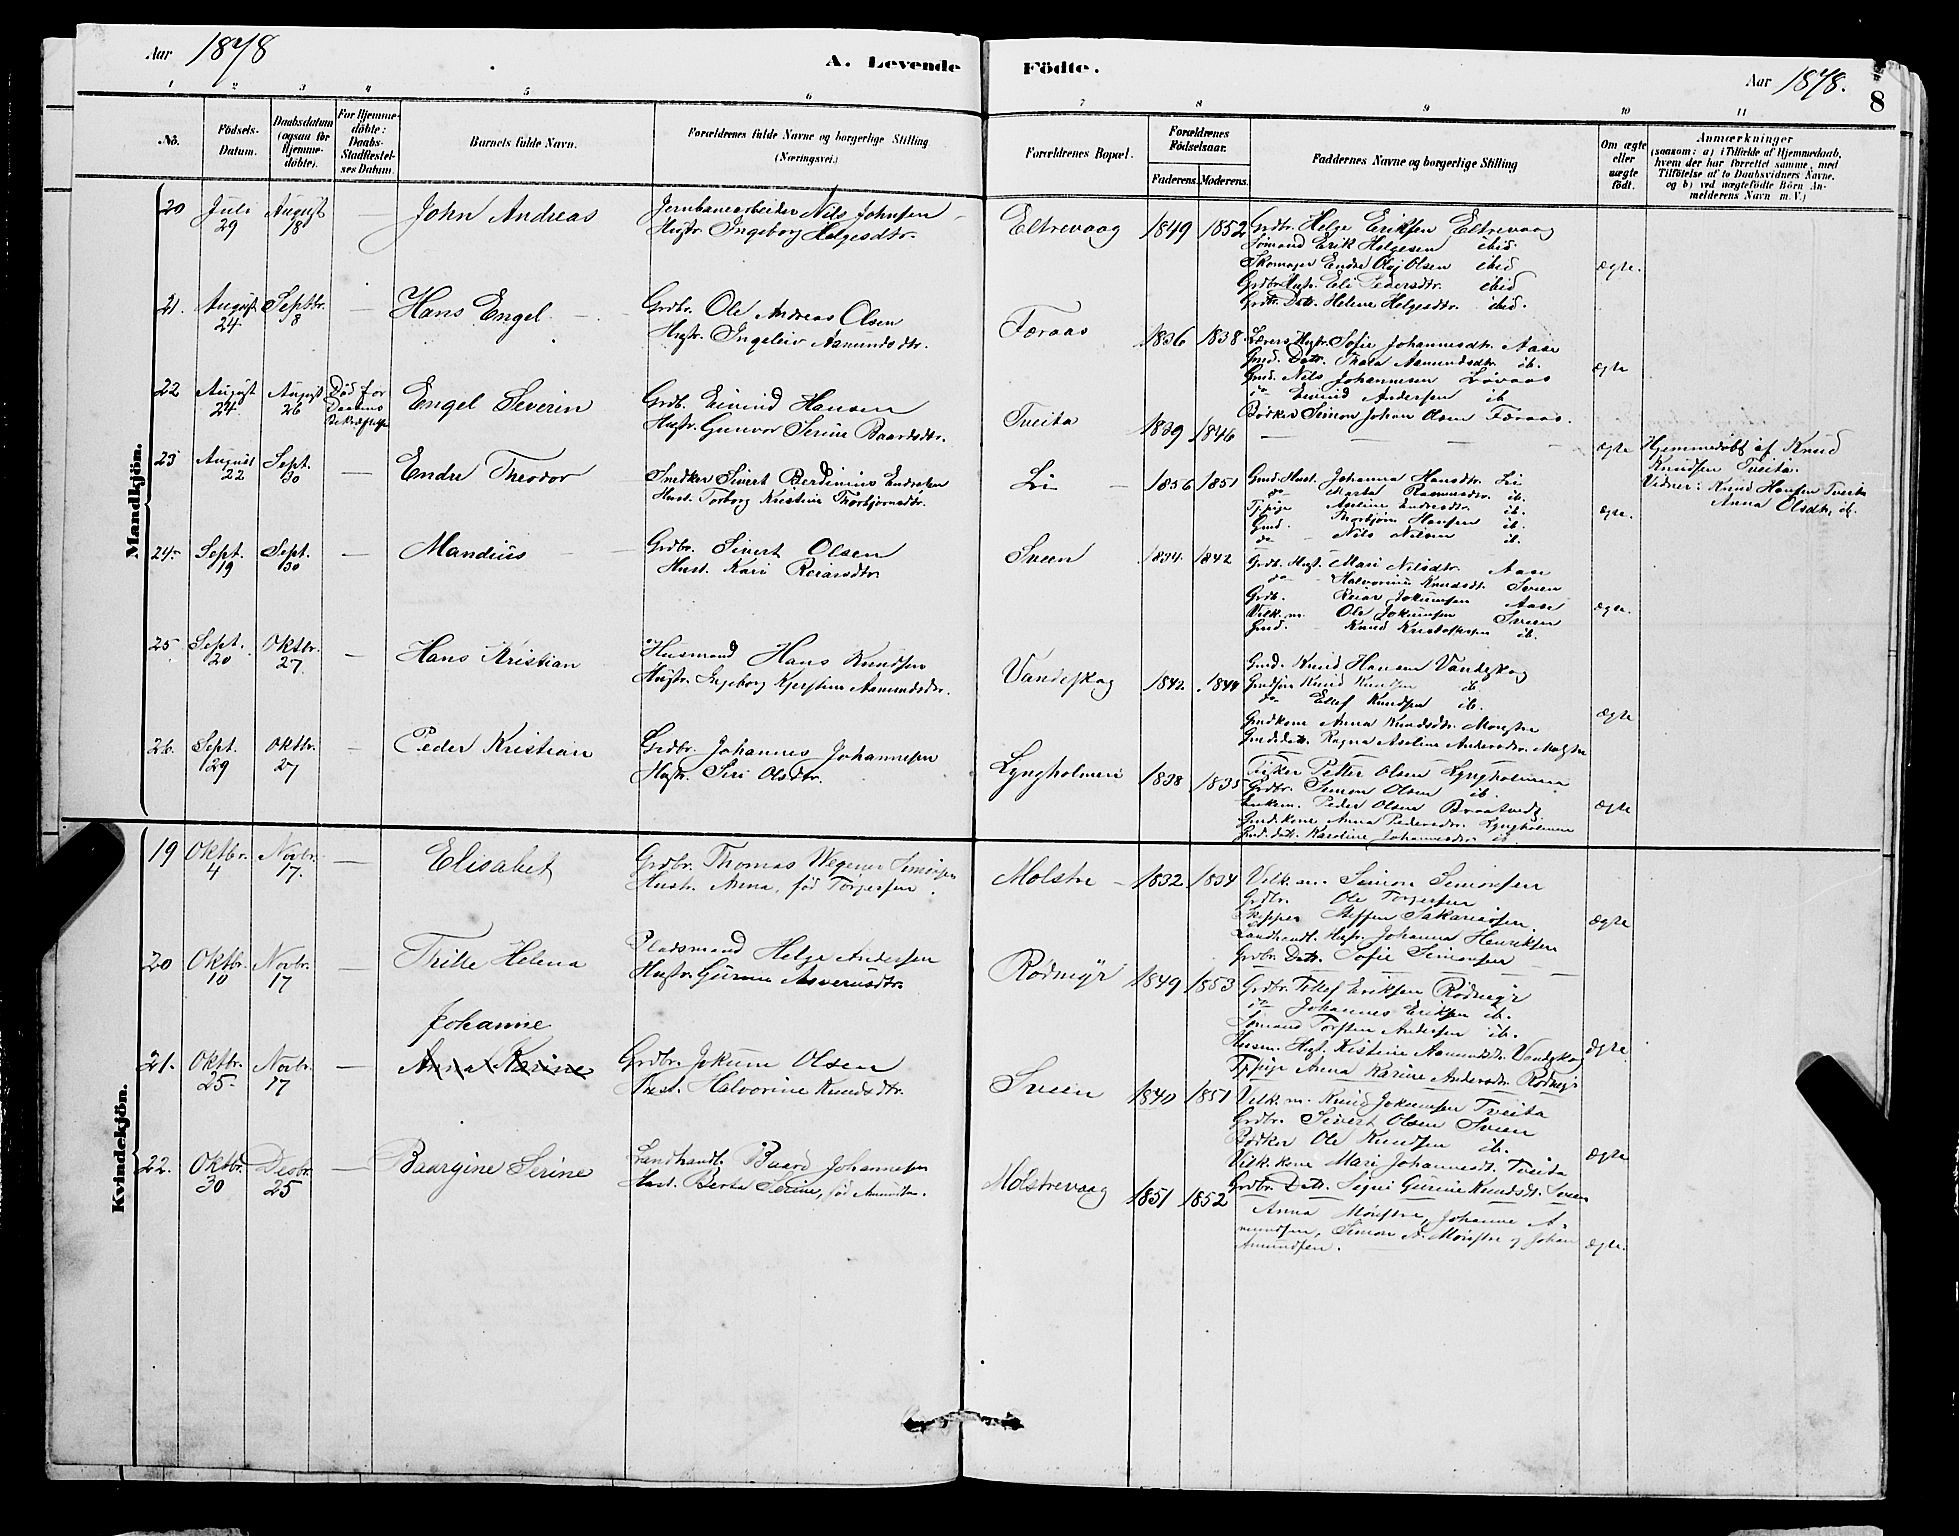 Aar 1878
A. Levende Födte.
Aar 1878.
8
1 2 3 4 5 6 7 8 9 10 11
No.
Födsels-Datum.
Daabsdatum (ogsaa for Hjemmedöbte).
For Hjemmedöbte: Daabs-Stadfæstelses Datum.
Barnets fulde Navn.
Forældrenes fulde Navne og borgerlige Stilling (Næringsvei.)
Forældrenes Bopæl.
Forældrenes Födselsaar.
Faderens. Moderens.
Faddernes Navne og borgerlige Stilling
Om ægte eller uægte födt.
Anmærkninger
(saasom: a) i Tilfælde af Hjemmedaab, hvem der har forrettet samme, med Tilföielse af to Daabsvidners Navne, og b) ved uægtefödte Börn Anmelderens Navn m. V.)
Mandkjön.
20 Juli 29 August 18 — John Andreas
Jernbanearbeider Nils Johnsen
Hustr. Ingeborg Helgesdtr.
Eltrevaag 1849 1852
Grdbr. Helge Eriksen Eltrevaag
Sømand Erik Helgesen ibid.
Skomager Endre Olsen ibid
Grdbr Hustr. Eli Pedersdtr. ibid
Grdbr. Datr. Helene Helgesdtr. ibid.
ægte.
21. August 24 Septbr. 8 — Hans Engel
Grdbr. Ole Andreas Olsen
Hustr. Ingeleiv Aamundsdtr.
Færaas 1836 1838
Hustr. Sofie Johannesdtr. Aase
Gmd. Datr. Thea Aamundsdtr. ib.
Gmd. Nils Johannesen Løvaas
do Eivind Andersen ib
Bødker Simon Johan Olsen Færaas.
ægte
22 August 24 August 26 Død før Daabens Bekræftelse
Engel Severin
Grdb. Eivind Hansen
Hustr. Gunvor Serine Baardsdtr.
Tveita 1839 1846
ægte
Hjemmedøbt af Knud
Knudsen Tveita.
Vidner: Knud Hansen Tveita
Anna Olsdtr. ib.
23 August 22 Sept. 30 — Endre Theodor
Snedker Sivert Berdinius Endresen
Hust. Torborg Kristine Thorbjørnsdtr.
Li 1856 1851
Gmd. Hust. Johanna Hansdtr. Li
do Marta Rasmusdtr. ib.
Tjpige Aseline Endresdtr. ib.
Gmd. Thorbjørn Hansen ib.
do Nils Nilsen ib.
ægte.
24. Sept. 19 Sept. 30 — Mandius
Grdbr. Sivert Olsen
Hust. Kari Reiarsdtr.
Sveen 1834 1842
Grdb. Hust. Mari Nilsdtr. Aase
do Halvorine Knudsdt. Sveen
Grdb. Reiar Jokumsen Aase
Ole Jokumsen Sveen
Gmd. Knud Kristoffersen ib.
ægte.
25 Sept. 20 Oktbr. 27 — Hans Kristian
Husmand Hans Knudsen
Hustr. Ingeborg Kjerstine Aamundsdtr.
Vandeskog 1842 1844
Gmd. Knud Hansen Vandeskog
Knud Knudsen ib.
do Ellef Knudsen ib.
Gmdkone Anna Knudsdtr. Mønstre
Ragna Aseline Andersdtr. Molstre
ægte
26. Sept. 29 Oktbr. 27 — Peder Kristian
Grdbr. Johannes Johannesen
Hustr. Siri Olsdtr.
Lyngholmen 1838 1835
Fisker Petter Olsen Lyngholmen
Grdbr. Simon Olsen ib.
Peder Olsen Braatveit
Gmd.kone Anna Pedersdtr. Lyngholmen
Gmd.datt. Karoline Johannesdtr. ib.
ægte
Kvindekjön.
19 Oktbr. 4 Novbr. 17. — Elisabet
Grdbr. Thomas Wegener Simonsen
Hustr. Anna, fød Torgersen.
Molstre 1832 1834
Simon Simonsen
Grdbr. Ole Torgersen
Skipper Steffen Sakariassen
Landhandl. Hustr. Johanna Henriksen
Grdbr. Datr. Sofie Simonsen
ægte
20 Oktbr. 10 Novbr. 17 — Trille Helena
Pladsmand Helge Andersen
Hustr. Gurine Asverusdtr.
Rødmyr 1849 1853
Grdbr. Tollef Eriksen Rødmyr
do Johannes Eriksen ib.
Sømand Torsten Andersen ib.
Husm. Hust. Kistine Aamundsdtr. Vandeskog
Tjpige Anna Karine Andersdtr. Rødmyr
ægte
Johanne
21. Oktbr. 25. Novbr. 17 — Anna Karine
Grdbr. Jokum Olsen
Hust. Halvorine Knudsdtr.
Sveen 1840 1851
Knud Jokumsen Tveita
Grdbr. Sivert Olsen Sveen
Bødker Ole Knudsen ib.
Mari Johannesdt. Tveita
Grdbr. Datr. Signi Gurine Knudsdt. Sveen
ægte
22. Oktbr. 30 Desbr. 25 — Baargine Serine
Landhandl. Baard Johannesen
Hust. Berta Serine, fød Amundsen.
Molstrevaag 1851 1852
Anna Mønstre, Johanne A-
mundsen, Simon A. Mønstre og Johan
Amundsen.
ægte.